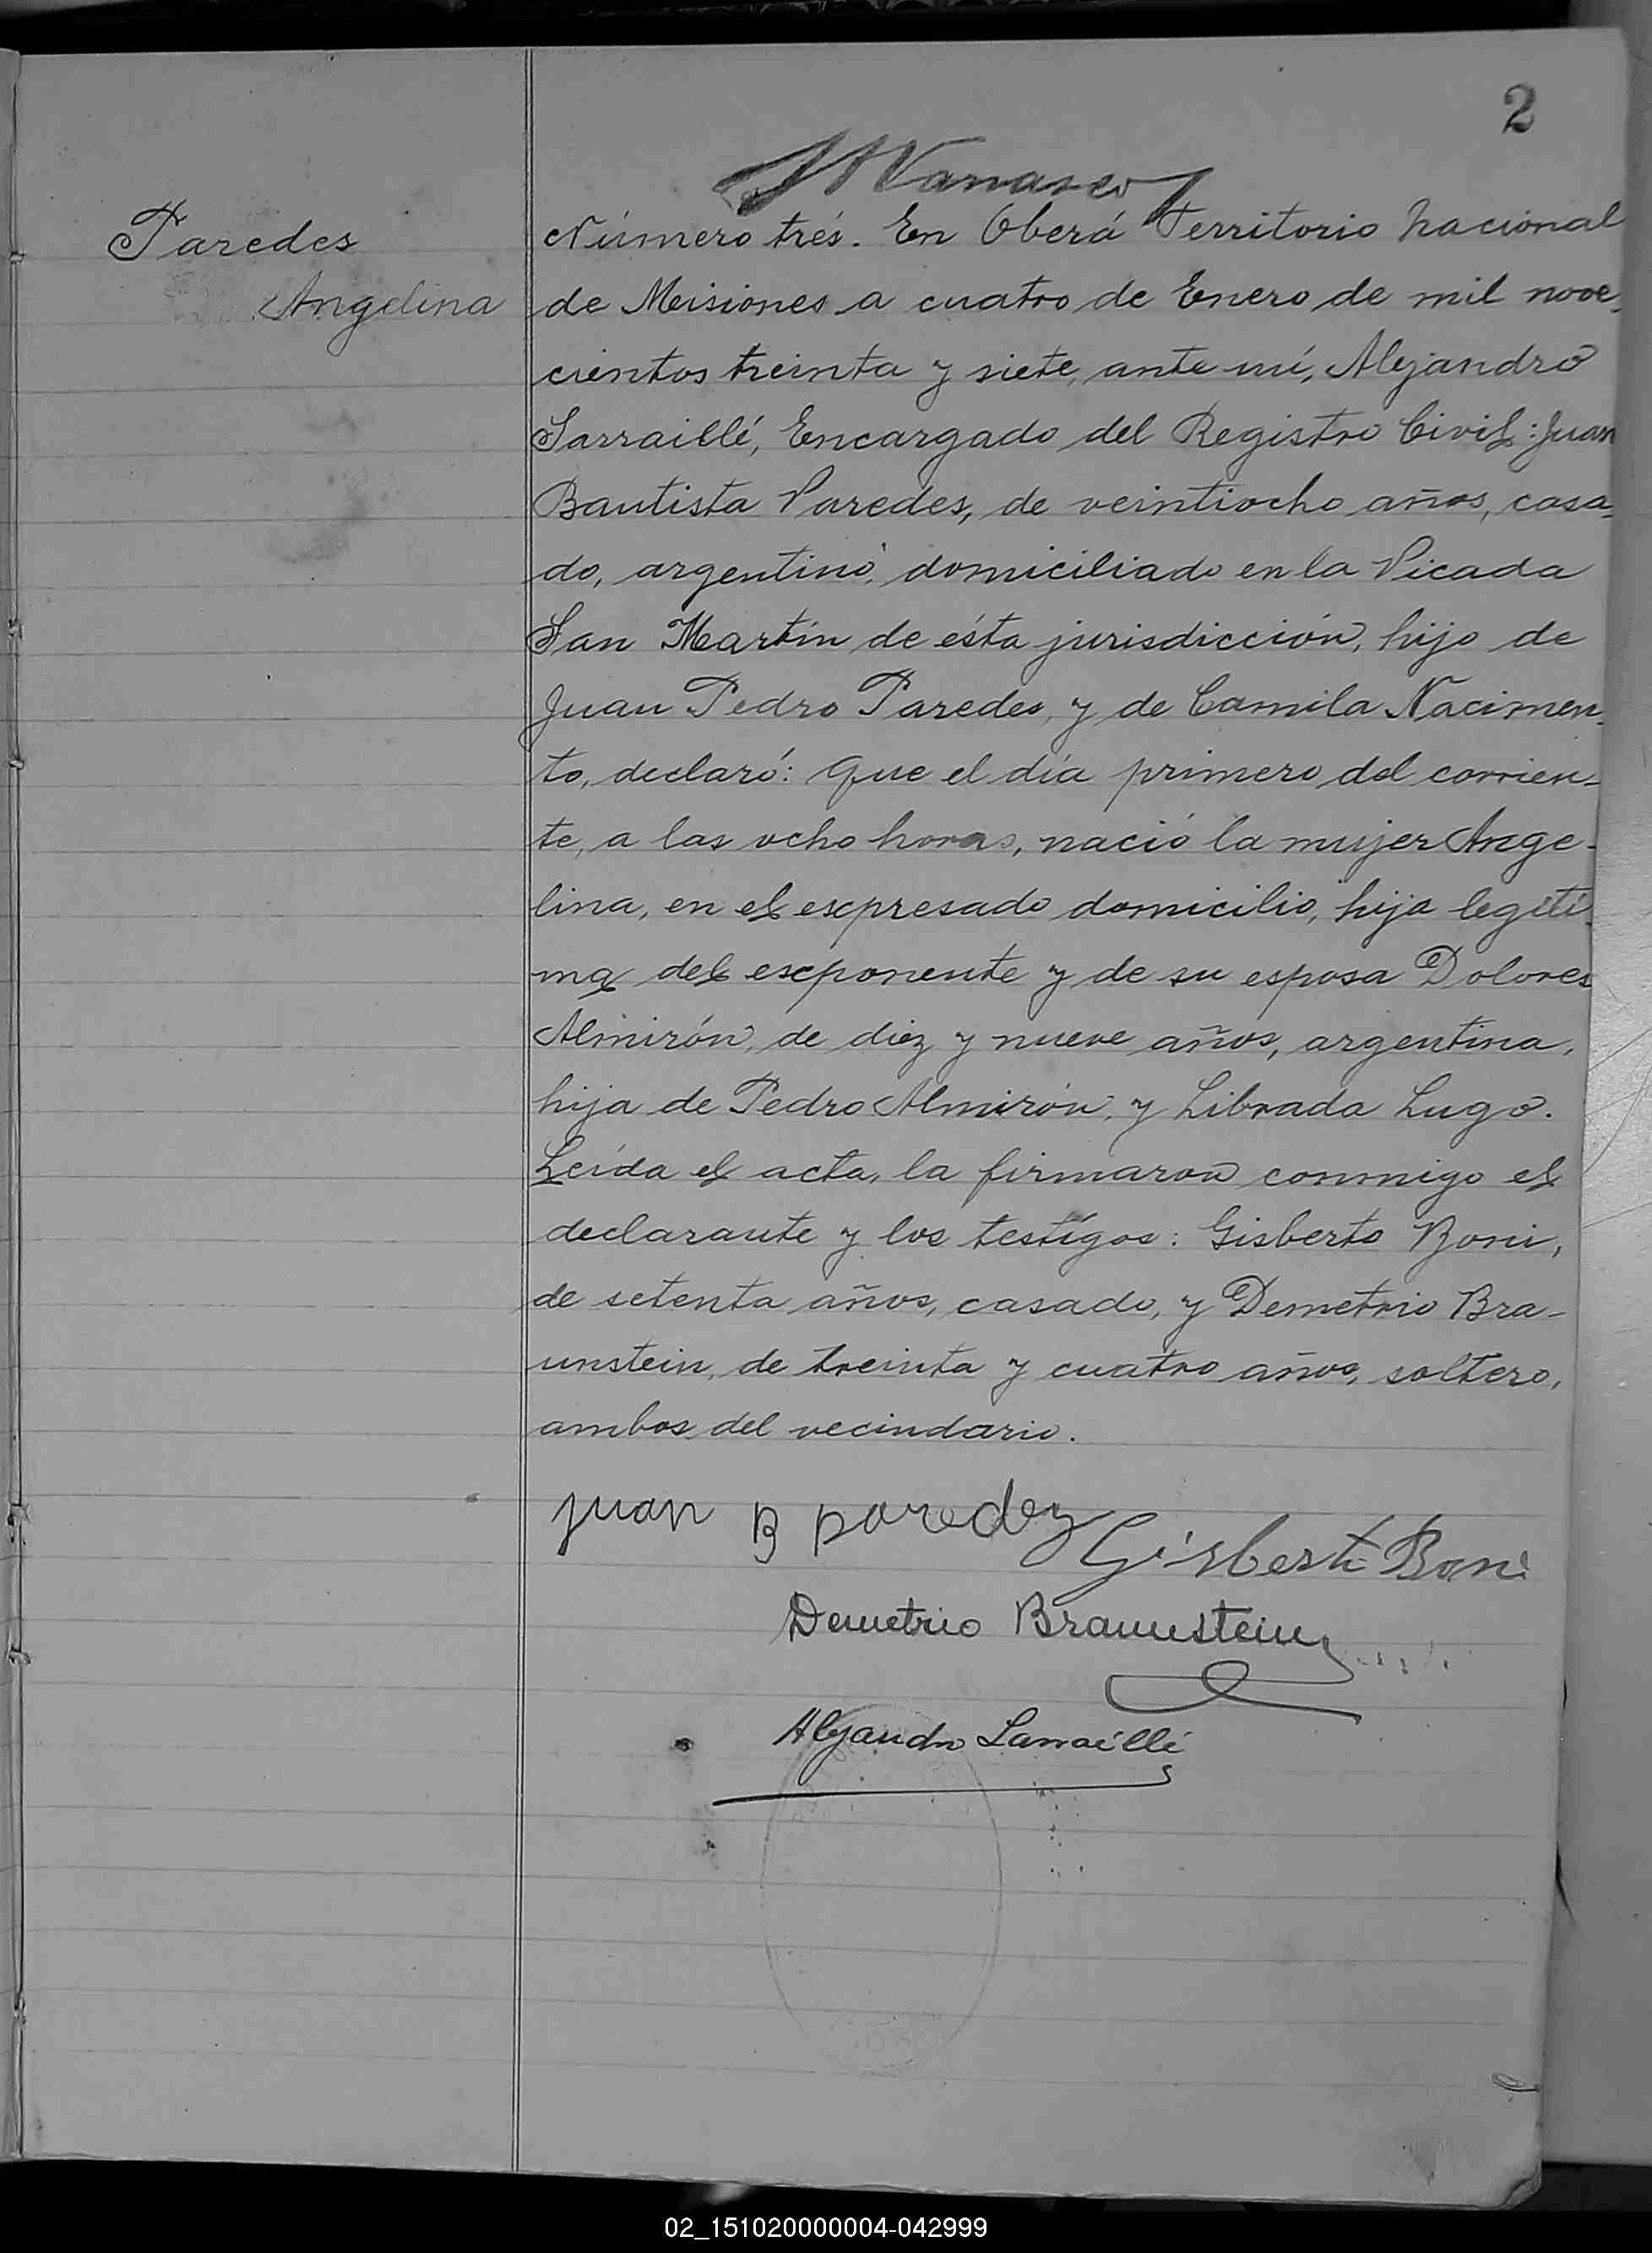 2
Paredes
Angelina
Número trés. En Oberá Territorio Nacional
de Misiones a cuatro de Enero de mil nove-
cientos treinta y siete, ante mí, Alejandro
Sarraillé, Encargado del Registro Civil: Juan
Bautista Paredes, de veintiocho años, casa-
do, argentino, domiciliado en la Picada
San Martín de ésta jurisdicción, hijo de
Juan Pedro Paredes, y de Camila Nacimen-
to, declaró: Que el día primero del corrien-
te, a las ocho horas, nació la mujer Ange-
lina, en el expresado domicilio, hija legíti-
ma del exponente y de su esposa Dolores
Almirón, de diez y nueve años, argentina,
hija de Pedro Almirón, y Librada Lugo.
Leída el acta, la firmaron conmigo el
declarante y los testígos: Gisberto Boni,
de setenta años, casado, y Demetrio Bra-
unstein, de treinta y cuatro años, soltero,
ambos del vecindario.
Juan B paredez
Gisberto Boni
Demetrio Braunstein
Alejandro Sarraillé
02_151020000004-042999